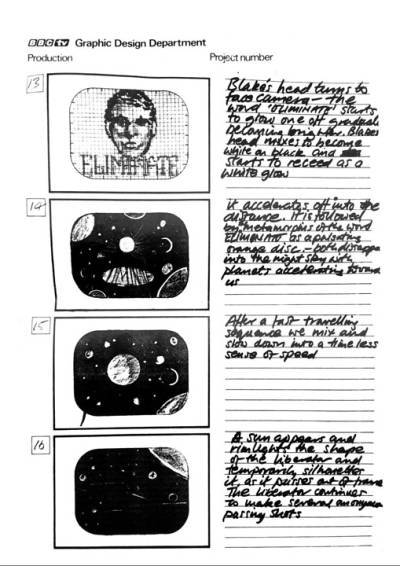 BBC tv Graphic Design Department
Production
Project number
13
ELIMINATE
Blake's head turns to
face camera – the
word 'ELIMINATE' starts
to glow one off gradually
becoming brighter. Blakes
head mixes to become
white on black and
starts to receed as a
white glow
14
it accelerates off into the
distance. It is followed
by the metamorphis of the word
ELIMINATE as a pulsating
orange disc. – both disappear
into the night sky with
planets accelerating toward
us
15
After a fast travelling
sequence we mix and
slow down into a timeless
sense of speed
16
A sun appears and
rimlights the shape
of the liberator and
temporarily silhouettes
it, as it passes out of frame
The liberator continues
to make several anonymous
passing shots